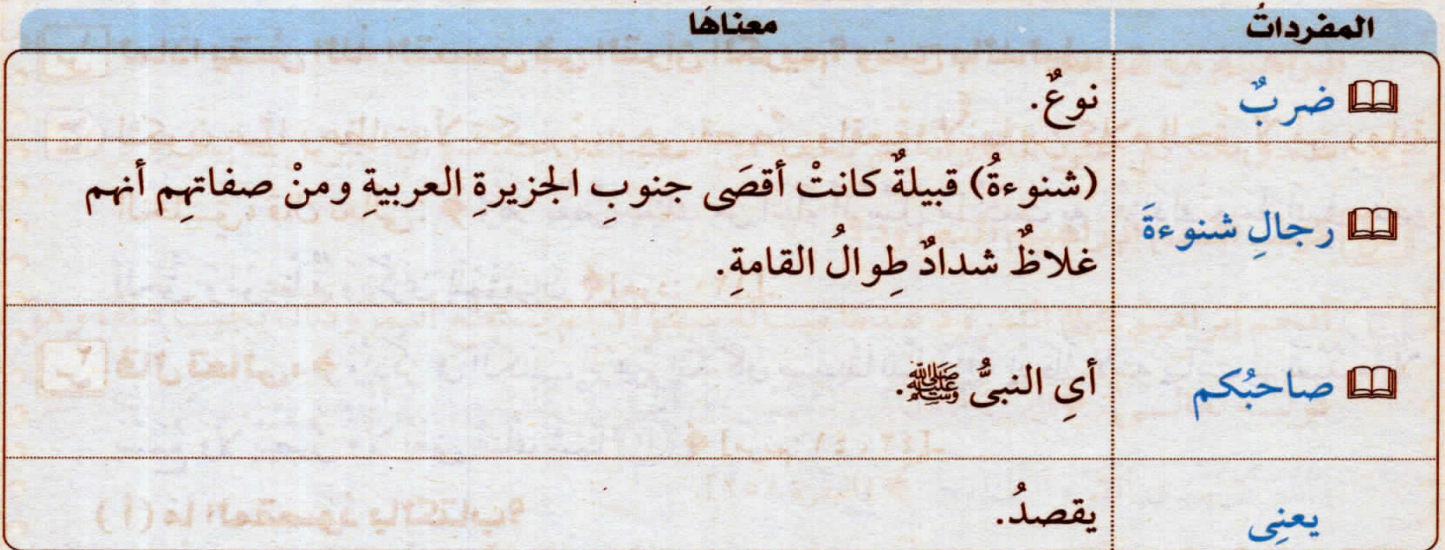 المفرداتُ معناهَا
ضربٌ نوعٌ.
رجالِ شنوءةَ (شنوءةُ) قبيلةٌ كانتْ أقصَى جنوبِ الجزيرةِ العربيةِ ومنْ صفاتهِم أنهم
غلاظٌ شدادٌ طِوالُ القامةِ.
صاحبُكم أىِ النبىُّ ﷺ.
يعنِى يقصدُ.